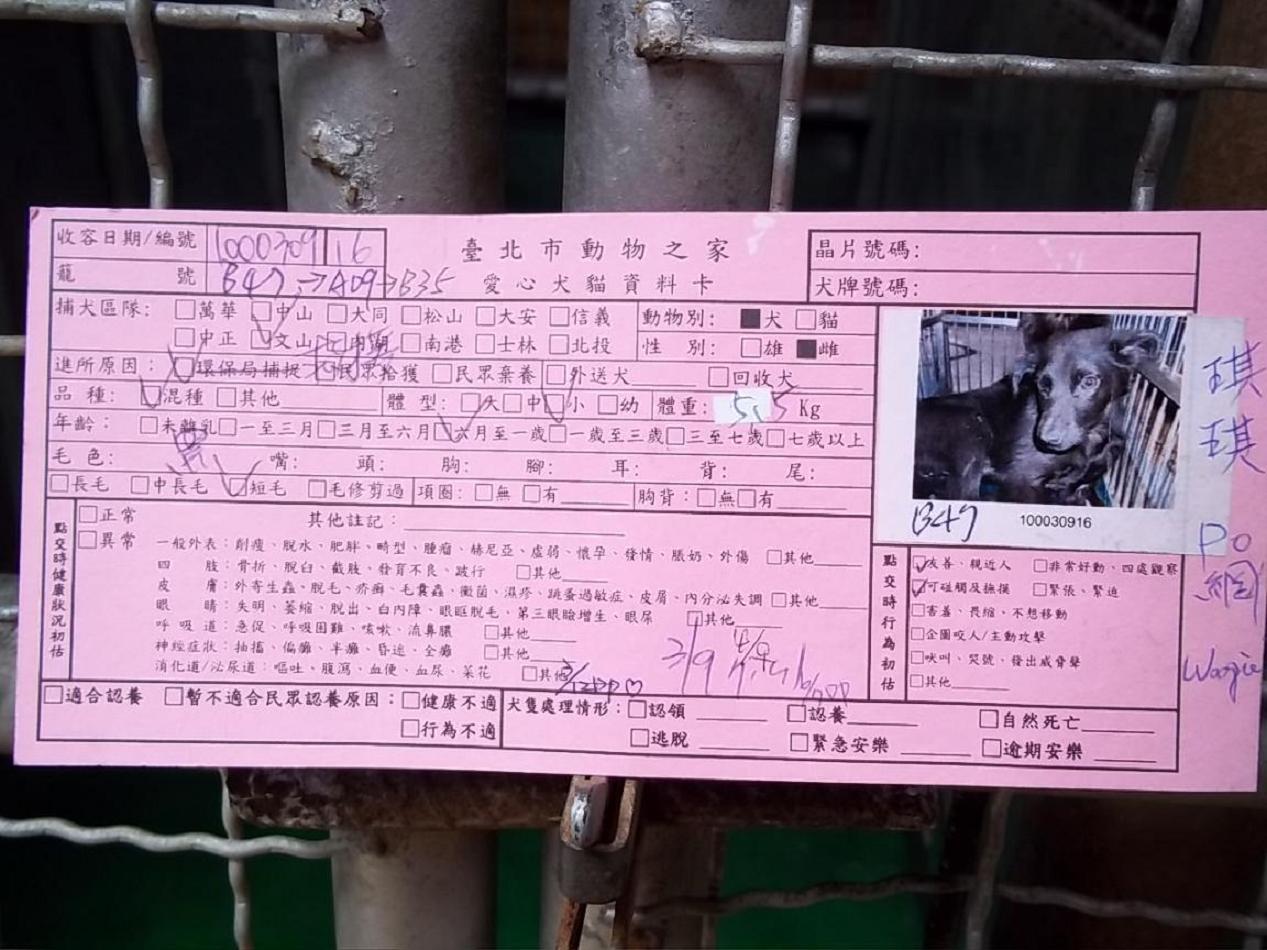 收容日期/編號 1000309 16
臺北市動物之家
晶片號碼:
籠號 B47→A09→B35
愛心犬貓資料卡
犬牌號碼:
捕犬區隊: □萬華 □中山 □大同 □松山 □大安 □信義
動物別: ■犬 □貓
□中正 □文山 □內湖 □南港 □士林 □北投
性別: □雄 ■雌
進所原因: □環保局捕捉 □民眾拾獲 □民眾棄養 □外送犬 □回收犬
品種: □混種 □其他 體型: □大 □中 □小 □幼 體重: 5.5 Kg
年齡: □未離乳 □一至三月 □三月至六月 □六月至一歲 □一歲至三歲 □三至七歲 □七歲以上
毛色: 黑 嘴: 頭: 胸: 腳: 耳: 背: 尾:
□長毛 □中長毛 □短毛 □毛修剪過 項圈: □無 □有 胸背: □無 □有
B47 100030916
琪琪
PO網
Woogie
點交時健康狀況初估
□正常 其他註記:
□異常 一般外表: 削瘦、脫水、肥胖、畸型、腫瘤、赫尼亞、虛弱、懷孕、發情、脹奶、外傷 □其他
四肢: 骨折、脫臼、截肢、發育不良、跛行 □其他
皮膚: 外寄生蟲、脫毛、疥癬、毛囊蟲、黴菌、濕疹、跳蚤過敏症、皮屑、內分泌失調 □其他
眼睛: 失明、萎縮、脫出、白內障、眼眶脫毛、第三眼瞼增生、眼屎 □其他
呼吸道: 急促、呼吸困難、咳嗽、流鼻膿 □其他
神經症狀: 抽搐、偏癱、半癱、昏迷、全癱 □其他
消化道/泌尿道: 嘔吐、腹瀉、血便、血尿、菜花 □其他
3/9
點交時行為初估
□友善、親近人 □非常好動、四處觀察
□可碰觸及撫摸 □緊張、緊迫
□害羞、畏縮、不想移動
□企圖咬人/主動攻擊
□吠叫、哭號、發出威脅聲
□其他
□適合認養 □暫不適合民眾認養原因: □健康不適
□行為不適
犬隻處理情形: □認領 □認養 □自然死亡
□逃脫 □緊急安樂 □逾期安樂